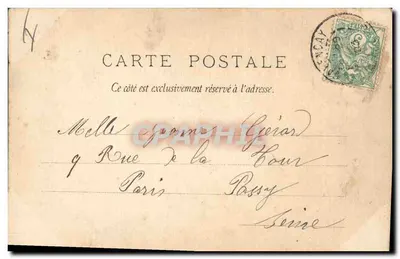 CARTE POSTALE
Ce côté est exclusivement réservé à l'adresse.
Melle Jeanne Giérard
9 Rue de la Tour
Paris Passy
Seine
CPAPHIL